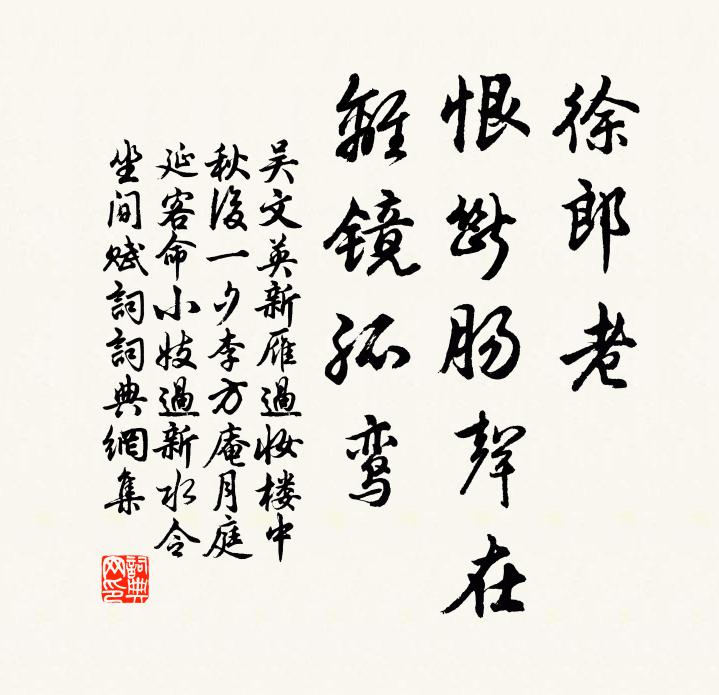 徐郎老
恨断肠聲在
離镜孤鸾
吴文英新雁過妆楼中
秋後一夕李方庵月庭
延客命小妓過新水令
坐间赋詞詞典網集
詞典网印